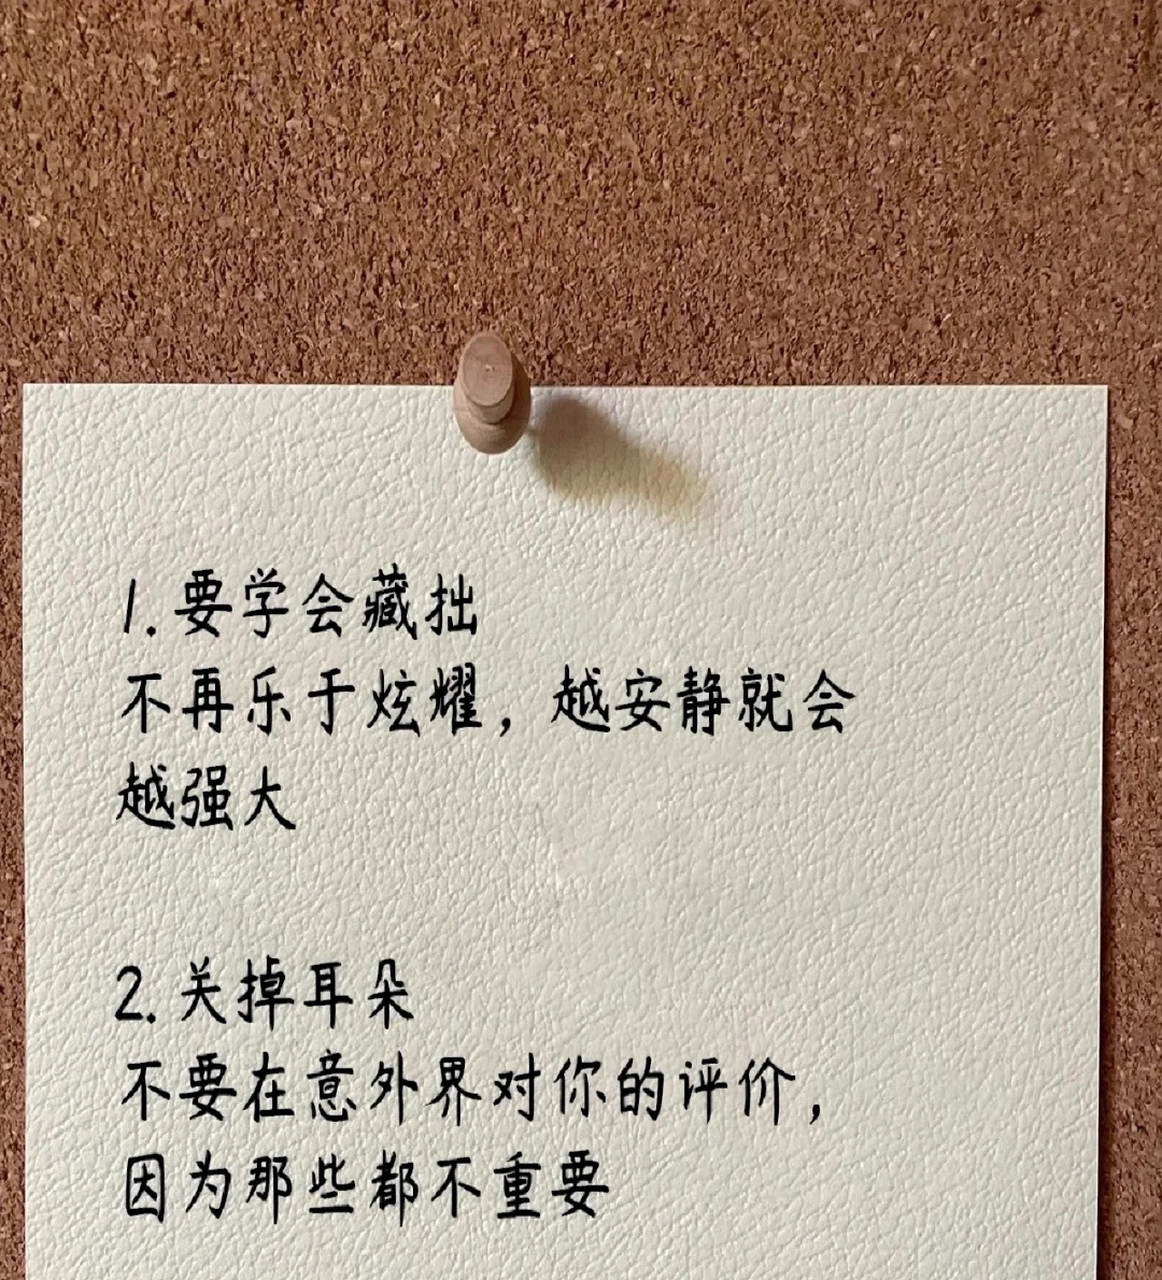 1. 要学会藏拙
不再乐于炫耀，越安静就会
越强大
2. 关掉耳朵
不要在意外界对你的评价，
因为那些都不重要